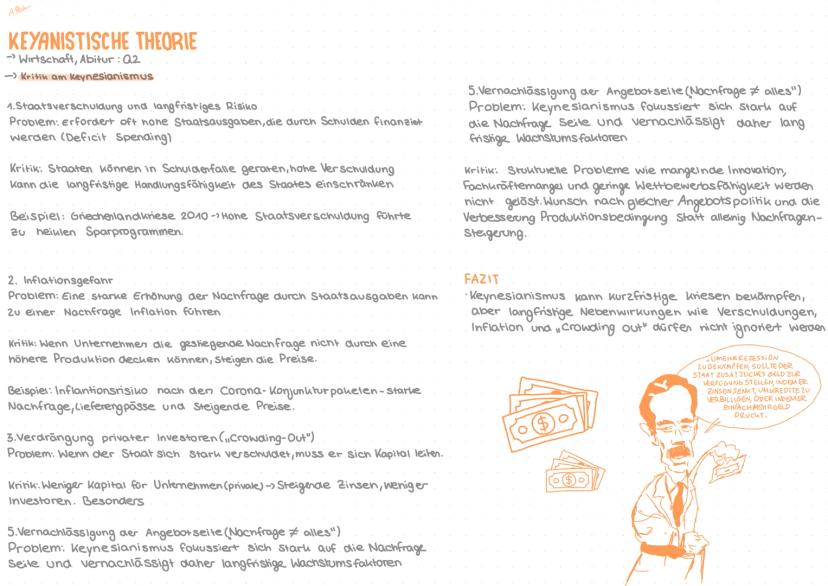 KEYANISTISCHE THEORIE
-> Wirtschaft, Abitur : Q2
-> Kritik am Keynesianismus
1.Staatsverschuldung und langfristiges Risiko
Problem: Erfordert oft hohe Staatsausgaben, die durch Schulden finanziert
werden (Deficit Spending)
Kritik: Staaten können in Schuldenfalle geraten, hohe Verschuldung
kann die langfristige Handlungsfähigkeit des Staates einschränken
Beispiel: Griechenlandkriese 2010 -> hohe Staatsverschuldung führte
zu heiklen Sparprogrammen.
2. Inflationsgefahr
Problem: Eine starke Erhöhung der Nachfrage durch Staatsausgaben kann
zu einer Nachfrage Inflation führen
Kritik: Wenn Unternehmen die gestiegende Nachfrage nicht durch eine
höhere Produktion decken können, steigen die Preise.
Beispiel: Inflantionsrisiko nach den Corona-Konjunkturpaketen - starke
Nachfrage, Lieferengpässe und Steigende Preise.
3.Verdrängung privater Investoren („Crowding-Out")
Problem: Wenn der Staat sich stark verschuldet, muss er sich Kapital leihen.
Kritik: Weniger Kapital für Unternehmen (private) -> Steigende Zinsen, weniger
Investoren. Besonders
5.Vernachlässigung der Angebotseite (Nachfrage ≠ alles")
Problem: Keynesianismus fokussiert sich stark auf die Nachfrage
Seite und vernachlässigt daher langfristige Wachstumsfaktoren
5.Vernachlässigung der Angebotseite (Nachfrage ≠ alles")
Problem: Keynesianismus fokussiert sich stark auf
die Nachfrage Seite und vernachlässigt daher lang
fristige Wachstumsfaktoren
Kritik: Strukturelle Probleme wie mangelnde Innovation,
Fachkräftemangel und geringe Wettbewerbsfähigkeit werden
nicht gelöst. Wunsch nach gleicher Angebotspolitik und die
Verbesserung Produktionsbedingung statt alleinig Nachfragen-
steigerung.
FAZIT
·Keynesianismus kann kurzfristige Kriesen bekämpfen,
aber langfristige Nebenwirkungen wie Verschuldungen,
Inflation und „Crowding out" dürfen nicht ignoriert werden
„UM EINE REZESSION
ZU BEKÄMPFEN, SOLLTE DER
STAAT ZUSÄTZLICHES GELD ZUR
VERFÜGUNG STELLEN, INDEM ER
ZINSEN SENKT, UM KREDITE ZU
VERBILLIGEN, ODER INDEM ER
EINFACH MEHR GELD
DRUCKT.